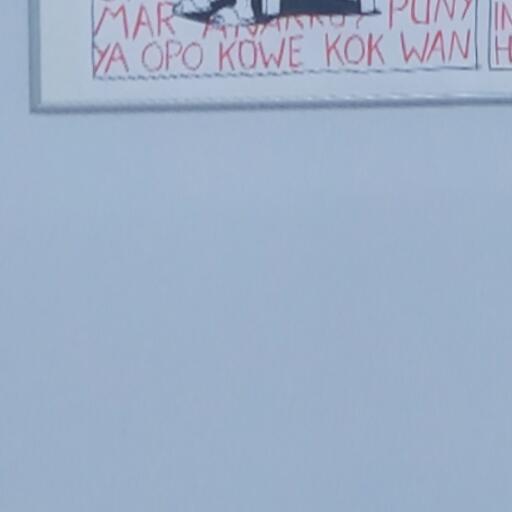 MAR ANAKKU? PUNY
YA OPO KOWE KOK WAN